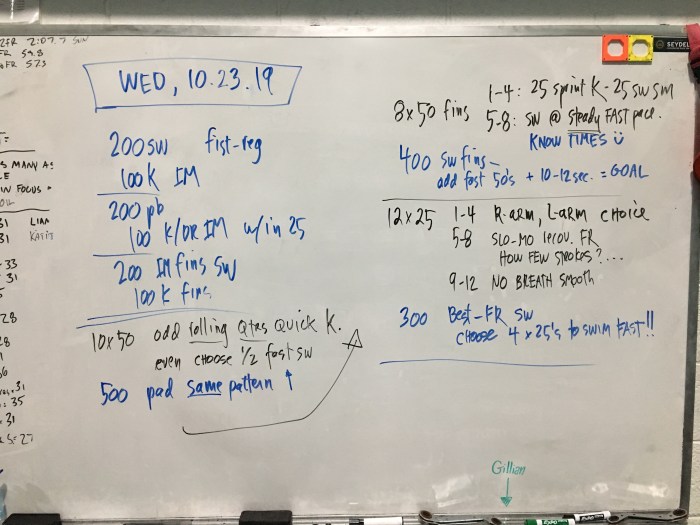 2FR 2:07.7 SW
FR 59.8
FR 573
S MANY AS
LE
IN FOCUS
31 LIAM
31 KATIE
33
31
28
31
35
31
27
WED, 10.23.19
200 SW fist-reg
100 K IM
200 pb
100 K/DR IM w/in 25
200 IM fins SW
100 K fins
10x50 odd rolling Qtrs Quick K.
even choose 1/2 fast SW
500 pad same pattern ↑
8x50 fins 1-4: 25 sprint K - 25 SW SM
5-8: SW @ steady FAST pace.
KNOW TIMES
400 SW fins -
add fast 50's + 10-12 sec. = GOAL
12x25 1-4 R-arm, L-arm CHOICE
5-8 SLO-MO recov. FR
HOW FEW strokes?...
9-12 NO BREATH Smooth
300 Best-FR SW
CHOOSE 4 x 25's to SWIM FAST!!
Gillian
SEYDEL